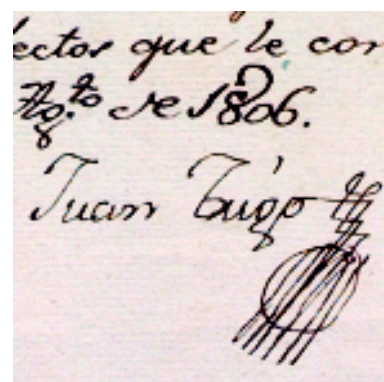 ectos que le con
Ag.to de 1806.
Juan